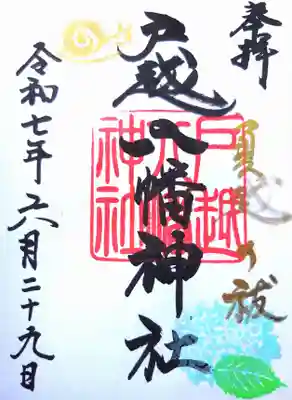 奉拝
夏越の祓
戸越八幡神社
戸越八幡神社
令和七年六月二十九日